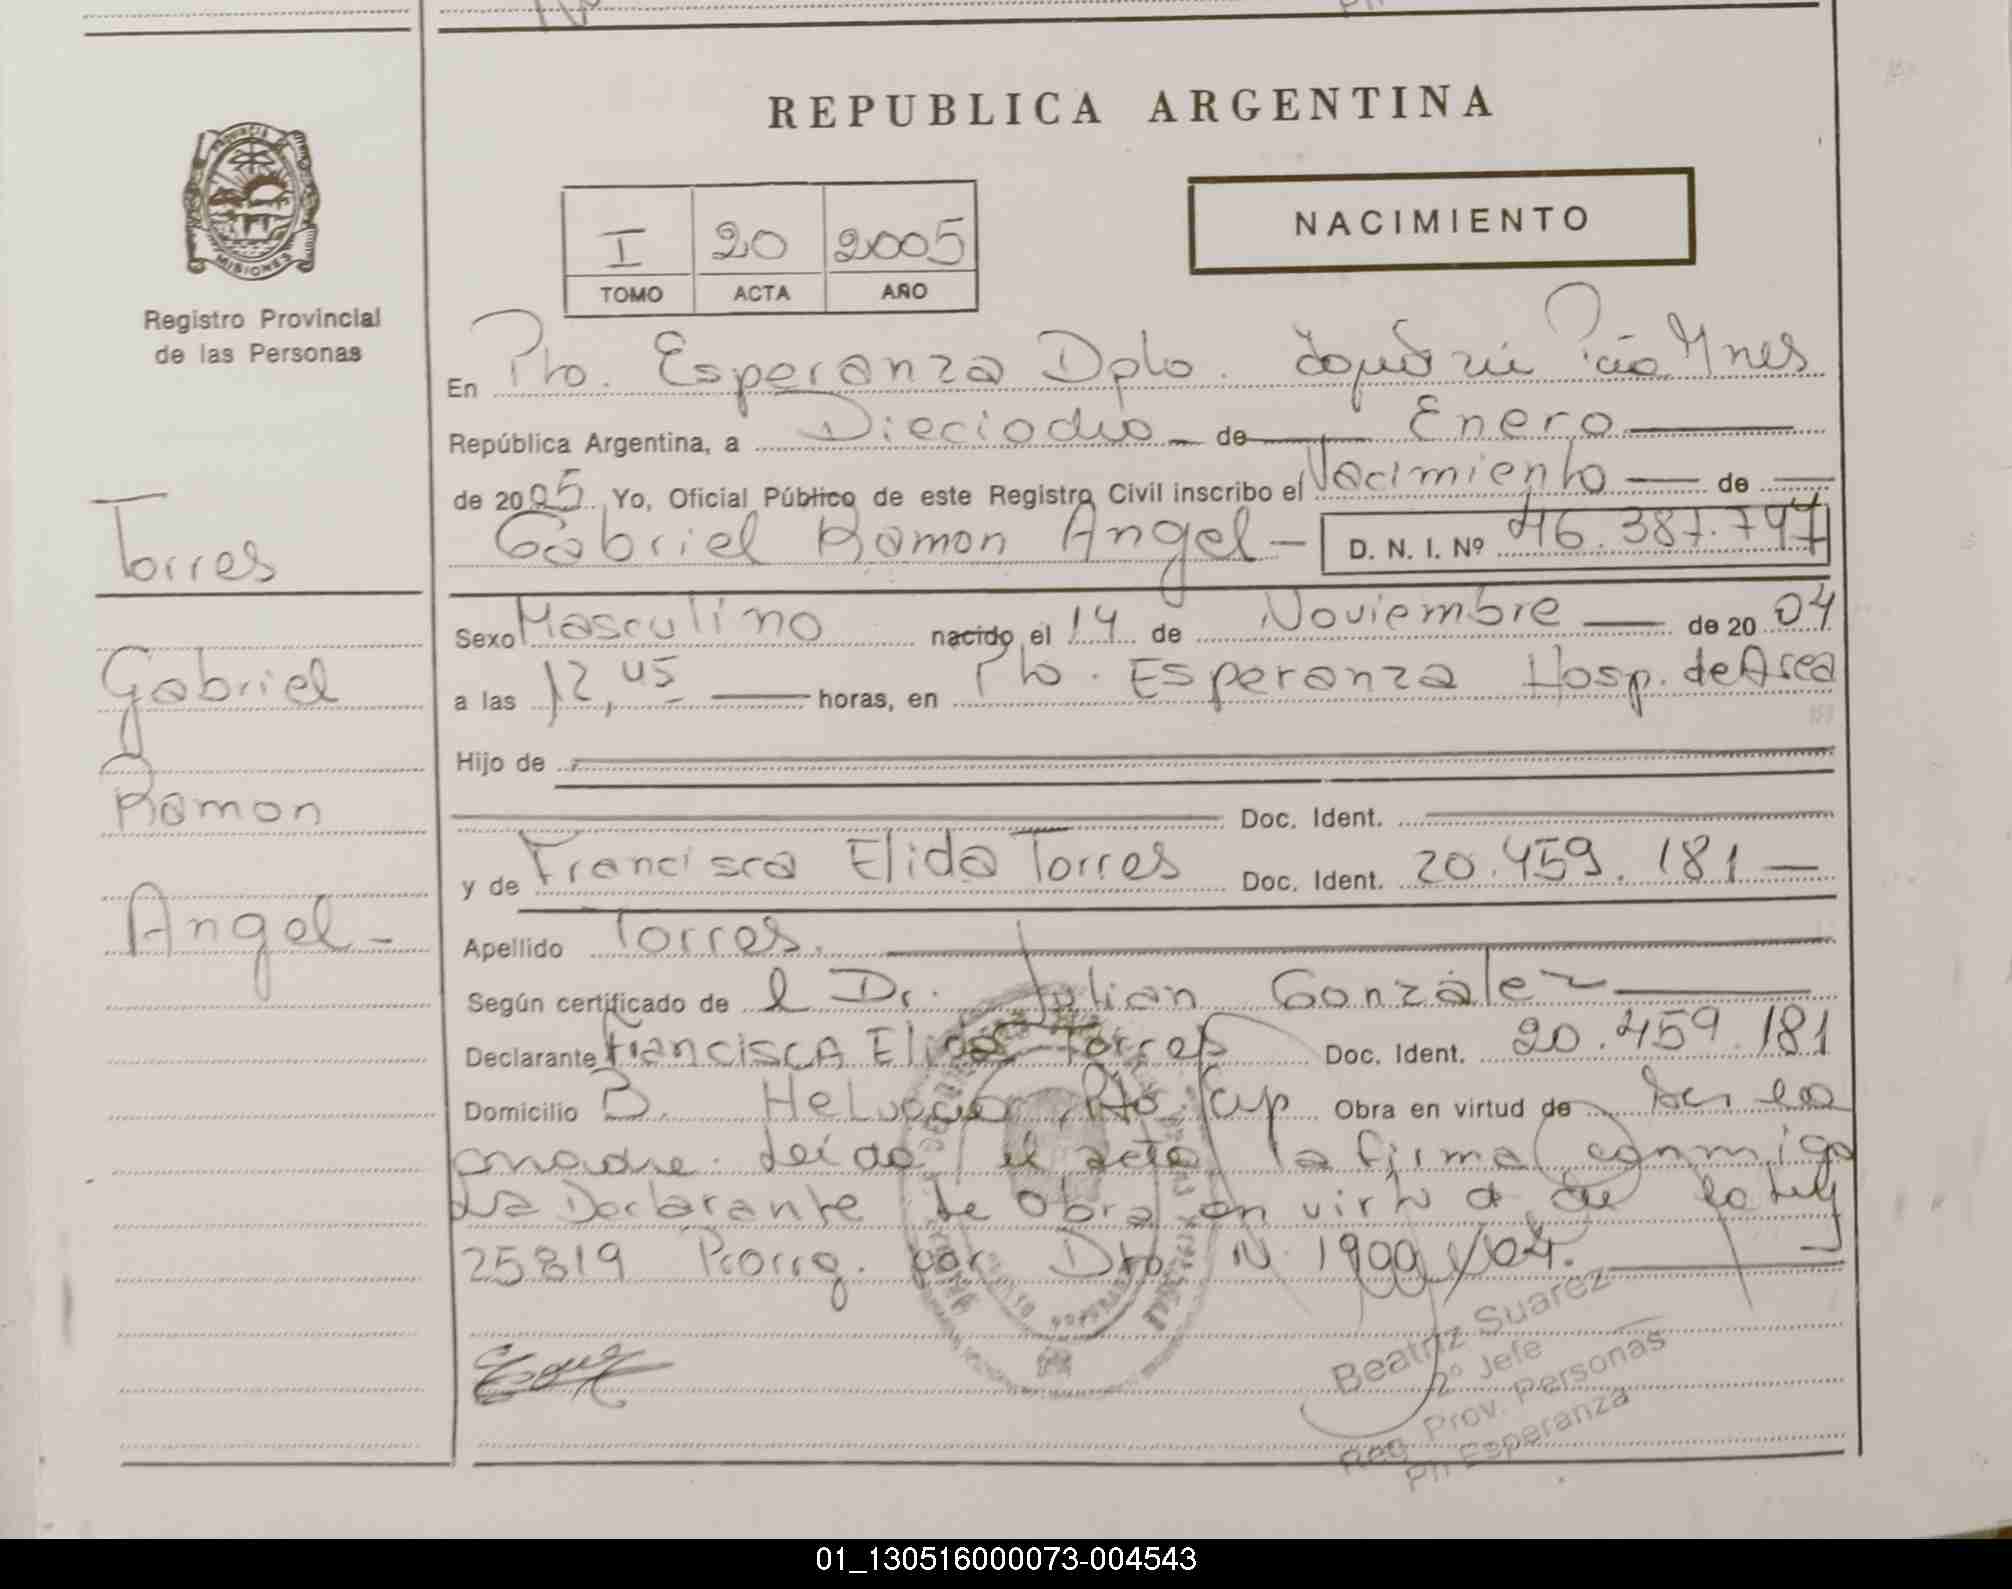 REPUBLICA ARGENTINA
PROVINCIA
MISIONES
Registro Provincial
de las Personas
I 20 2005
TOMO ACTA AÑO
NACIMIENTO
Torres
Gabriel
Ramon
Angel -
En Pto. Esperanza Dpto. Ynes
República Argentina, a Dieciocho - de Enero
de 2005 Yo, Oficial Público de este Registro Civil inscribo el Nacimiento de
Gabriel Ramon Angel - D. N. I. Nº 46.387.797
Sexo Masculino nacido el 14 de Noviembre de 2004
a las 12,45 horas, en Pto. Esperanza Hosp. de Area
Hijo de
Doc. Ident.
y de Francisca Elida Torres Doc. Ident. 20.459.181
Apellido Torres.
Según certificado de l Dr. Julian Gonzalez
Declarante Francisca Elida Torres Doc. Ident. 20.459.181
Domicilio B. Obra en virtud de Ser la
madre. Leída el acta la firma conmigo
La Declarante Se Obra en virtud de la Ley
25819 Prorrg. por Dto N 1900/04.
Beatriz Suarez
2º Jefe
Reg. Prov. Personas
Pto Esperanza
01_130516000073-004543